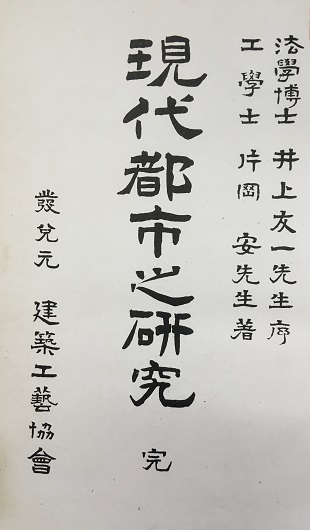 法學博士 井上友一先生序
工學士 片岡 安先生著
現代都市之研究 完
發兌元 建築工藝協會